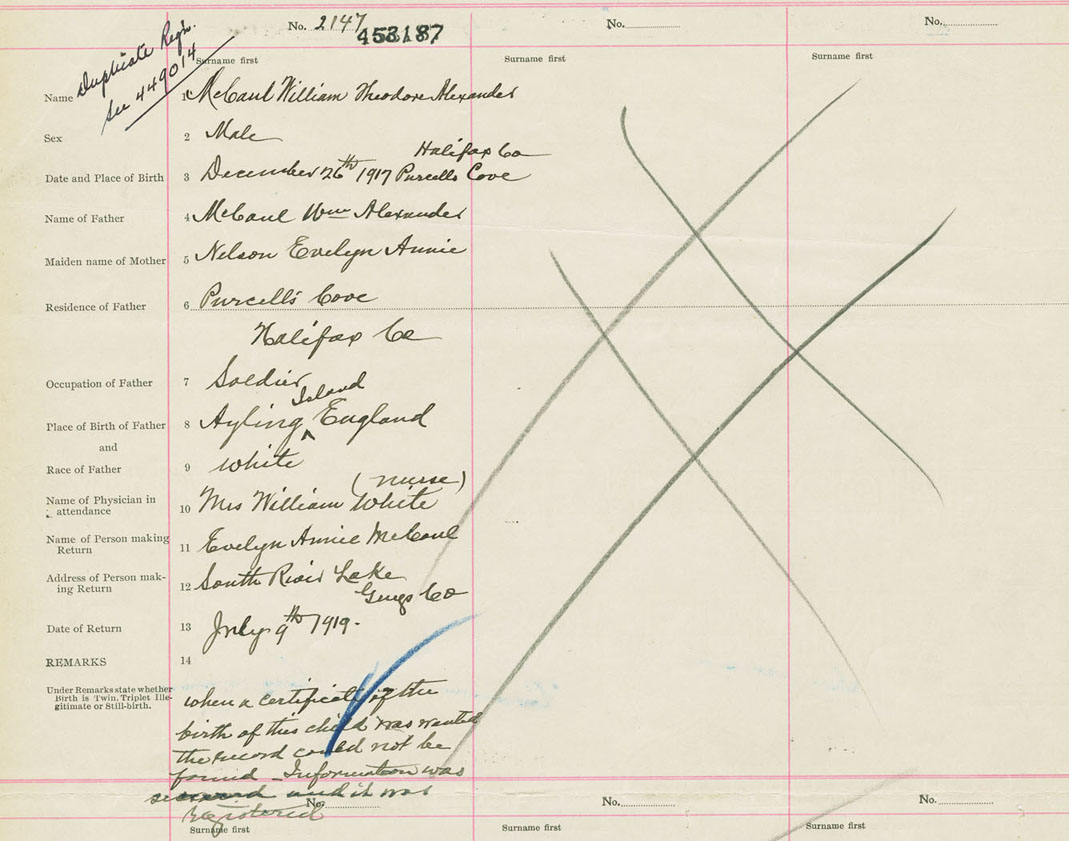 Duplicate Regn.
See 449014
No. 2147
453187
No.
No.
Surname first
Surname first
Surname first
Name
1 McCaul William Theodore Alexander
Sex
2 Male
Halifax Co
Date and Place of Birth
3 December 26th 1917 Purcells Cove
Name of Father
4 McCaul Wm Alexander
Maiden name of Mother
5 Nelson Evelyn Annie
Residence of Father
6 Purcell's Cove
Halifax Co
Occupation of Father
7 Soldier
Island
Place of Birth of Father
8 Ayling ^ England
and
Race of Father
9 White
(nurse)
Name of Physician in
attendance
10 Mrs William White
Name of Person making
Return
11 Evelyn Annie McCaul
Address of Person mak-
ing Return
12 South River Lake
Guys Co
Date of Return
13 July 9th 1919.
REMARKS
14
Under Remarks state whether
Birth is Twin, Triplet Ille-
gitimate or Still-birth.
when a certificate of the
birth of this child was wanted
the record could not be
found - Information was
secured and it was
registered
No.
No.
No.
Surname first
Surname first
Surname first